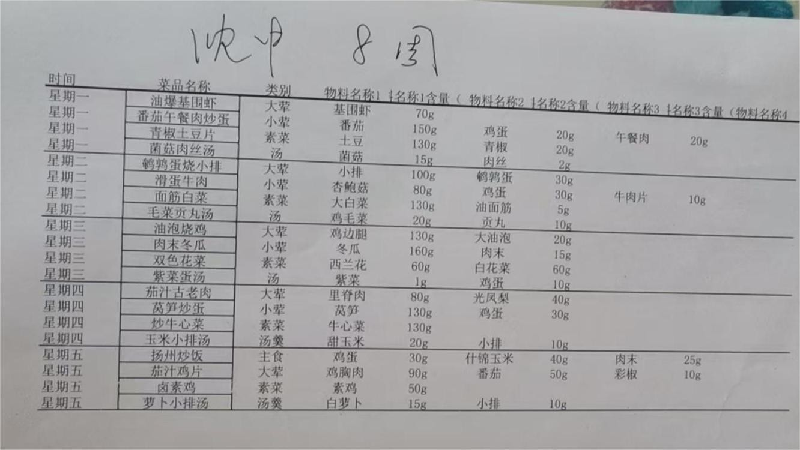 沈中 8周
时间 菜品名称 类别 物料名称1 名称1含量( 物料名称2 名称2含量( 物料名称3 名称3含量(物料名称4
星期一 油爆基围虾 大荤 基围虾 70g
星期一 番茄午餐肉炒蛋 小荤 番茄 150g 鸡蛋 20g 午餐肉 20g
星期一 青椒土豆片 素菜 土豆 130g 青椒 20g
星期一 菌菇肉丝汤 汤 菌菇 15g 肉丝 2g
星期二 鹌鹑蛋烧小排 大荤 小排 100g 鹌鹑蛋 30g
星期二 滑蛋牛肉 小荤 杏鲍菇 80g 鸡蛋 30g 牛肉片 10g
星期二 面筋白菜 素菜 大白菜 130g 油面筋 5g
星期二 毛菜贡丸汤 汤 鸡毛菜 20g 贡丸 10g
星期三 油泡烧鸡 大荤 鸡边腿 130g 大油泡 20g
星期三 肉末冬瓜 小荤 冬瓜 160g 肉末 15g
星期三 双色花菜 素菜 西兰花 60g 白花菜 60g
星期三 紫菜蛋汤 汤 紫菜 1g 鸡蛋 10g
星期四 茄汁古老肉 大荤 里脊肉 80g 光凤梨 40g
星期四 莴笋炒蛋 小荤 莴笋 130g 鸡蛋 30g
星期四 炒牛心菜 素菜 牛心菜 130g
星期四 玉米小排汤 汤羹 甜玉米 20g 小排 10g
星期五 扬州炒饭 主食 鸡蛋 30g 什锦玉米 40g 肉末 25g
星期五 茄汁鸡片 大荤 鸡胸肉 90g 番茄 50g 彩椒 10g
星期五 卤素鸡 素菜 素鸡 50g
星期五 萝卜小排汤 汤羹 白萝卜 15g 小排 10g